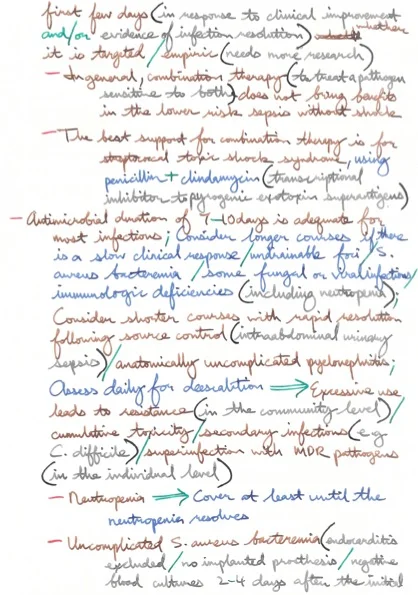 first few days (in response to clinical improvement
and/or evidence of infection resolution) whether
it is targeted / empiric (needs more research)
- In general, combination therapy (to treat a pathogen
sensitive to both) does not bring benefits
in the lower risk sepsis without shock
- The best support for combination therapy is for
streptococcal toxic shock syndrome, using
penicillin + clindamycin (transcriptional
inhibitor to pyrogenic exotoxin superantigens)
- Antimicrobial duration of 7-10 days is adequate for
most infections; Consider longer courses if there
is a slow clinical response / undrainable foci / S.
aureus bacteremia / some fungal or viral infections /
immunologic deficiencies (including neutropenia);
Consider shorter courses with rapid resolution
following source control (intraabdominal urinary
sepsis) / anatomically uncomplicated pyelonephritis;
Assess daily for deescalation ⇒ Excessive use
leads to resistance (in the community level) /
cumulative toxicity / secondary infections (e.g
C. difficile) / superinfection with MDR pathogens
(in the individual level)
- Neutropenia ⇒ Cover at least until the
neutropenia resolves
- Uncomplicated S. aureus bacteremia (endocarditis
excluded / no implanted prosthesis / negative
blood cultures 2-4 days after the initial